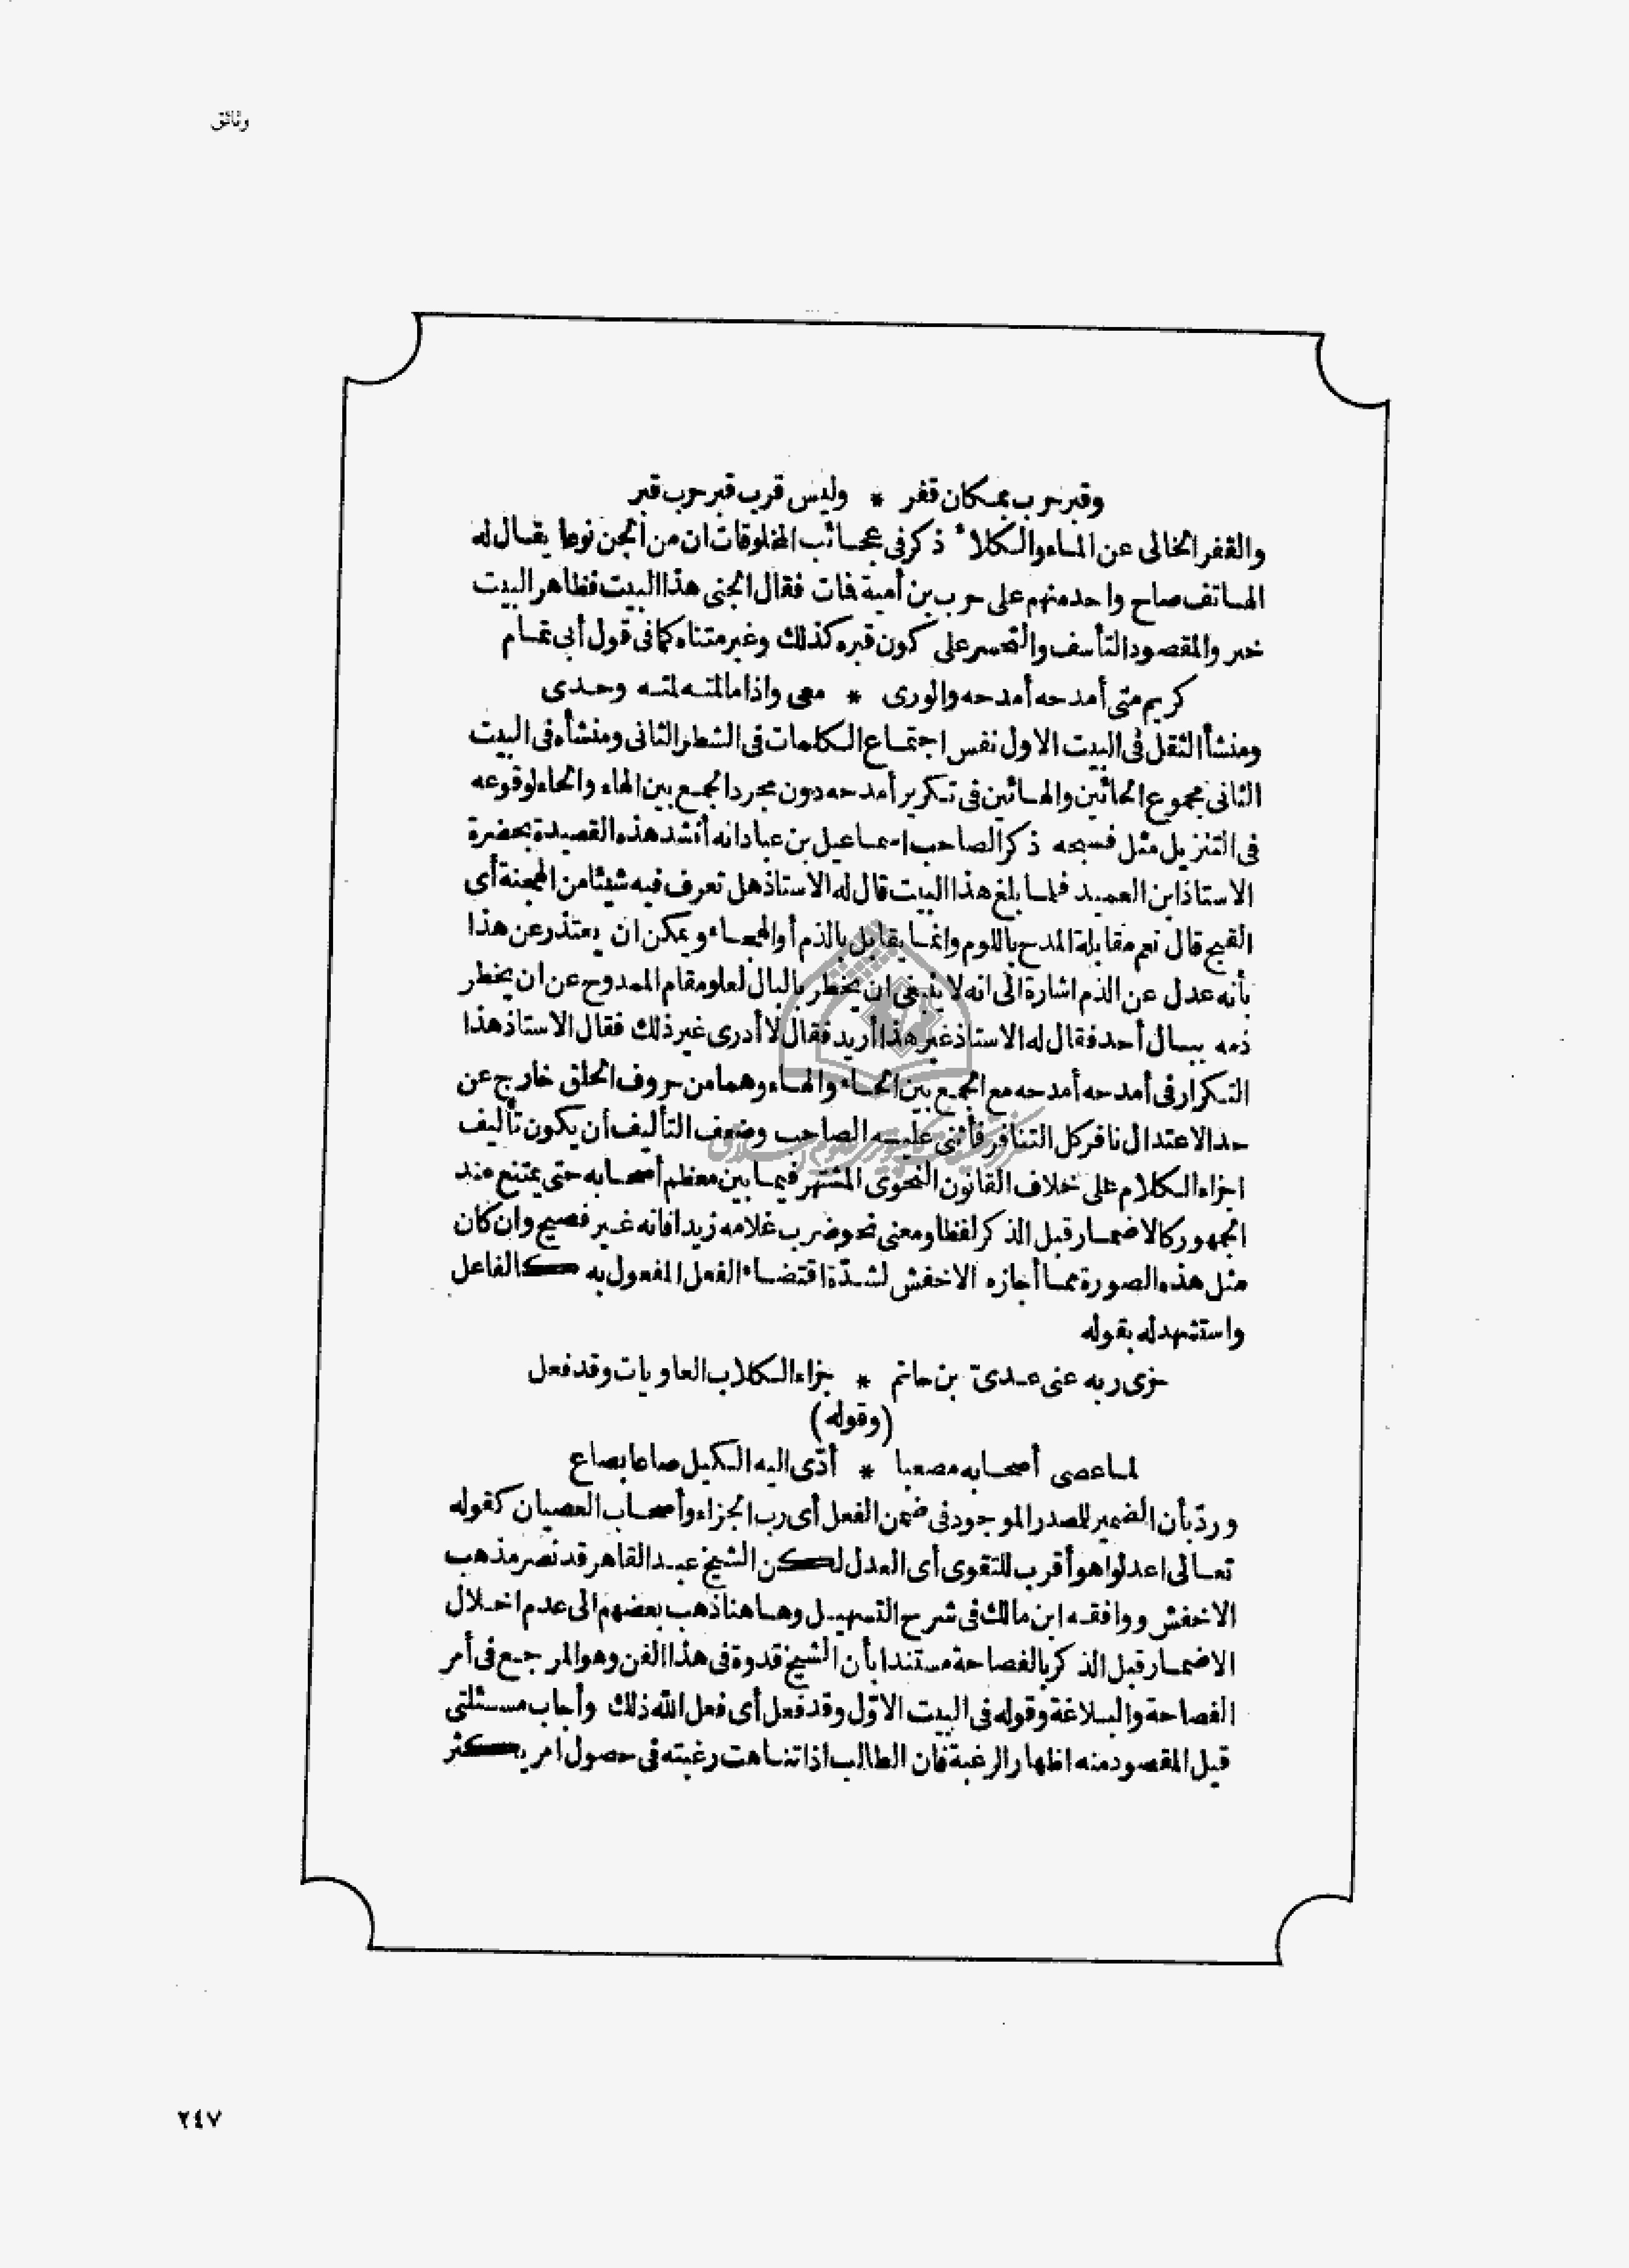 وثائق
وقبر حرب بمكان قفر * وليس قرب قبر حرب قبر
والقفر الخالى عن الماء والكلاء ذكر فى عجائب المخلوقات ان من الجن نوعا يقال له
الهاتف صاح واحد منهم على حرب بن أمية فمات فقال الجنى هذا البيت فظاهر البيت
خبر والمقصود التأسف والتحسر على كون قبره كذلك وغير متناه كما فى قول أبى تمام
كريم متى أمدحه أمدحه والورى * معى واذا ما لمته لمته وحدى
ومنشأ الثقل فى البيت الاول نفس اجتماع الكلمات فى الشطر الثانى ومنشأه فى البيت
الثانى مجموع الحائين والهائين فى تكرير أمدحه دون مجرد الجمع بين الهاء والحاء لوقوعه
فى التنزيل مثل فسبحه ذكر الصاحب اسماعيل بن عباد انه أنشد هذه القصيدة بحضرة
الاستاذ ابن العميد فلما بلغ هذا البيت قال له الاستاذ هل تعرف فيه شيئا من الهجنة أى
القبح قال نعم مقابلة المدح باللوم وانما يقابل بالذم أو الهجاء ويمكن ان يعتذر عن هذا
بأنه عدل عن الذم اشارة الى انه لا ينبغى ان يخطر بالبال لعلو مقام الممدوح عن ان يخطر
ذمه ببال أحد فقال له الاستاذ غير هذا أريد فقال لا أدرى غير ذلك فقال الاستاذ هذا
التكرار فى أمدحه أمدحه مع الجمع بين الحاء والهاء وهما من حروف الحلق خارج عن
حد الاعتدال نافر كل التنافر فأثنى عليه الصاحب وضعف التأليف أن يكون تأليف
اجزاء الكلام على خلاف القانون النحوى المشتهر فيما بين معظم أصحابه حتى يمتنع عند
الجمهور كالاضمار قبل الذكر لفظا ومعنى نحو ضرب غلامه زيدا فانه غير فصيح وان كان
مثل هذه الصورة مما أجازه الاخفش لشدّة اقتضاء الفعل المفعول به كالفاعل
واستشهد له بقوله
جزى ربه عنى عدىّ بن حاتم * جزاء الكلاب العاويات وقد فعل
(وقوله)
لما عصى أصحابه مصعبا * أدّى اليه الكيل صاعا بصاع
وردّ بأن الضمير للمصدر الموجود فى ضمن الفعل أى رب الجزاء وأصحاب العصيان كقوله
تعالى اعدلوا هو أقرب للتقوى أى العدل لكن الشيخ عبد القاهر قد نصر مذهب
الاخفش ووافقه ابن مالك فى شرح التسهيل وهاهنا ذهب بعضهم الى عدم اخلال
الاضمار قبل الذكر بالفصاحة مستندا بأن الشيخ قدوة فى هذا الفن وهو المرجع فى أمر
الفصاحة والبلاغة وقوله فى البيت الاوّل وقد فعل أى فعل الله ذلك وأجاب مسئلتى
قيل المقصود منه اظهار الرغبة فان الطالب اذا تناهت رغبته فى حصول امر يكثر
٢٤٧